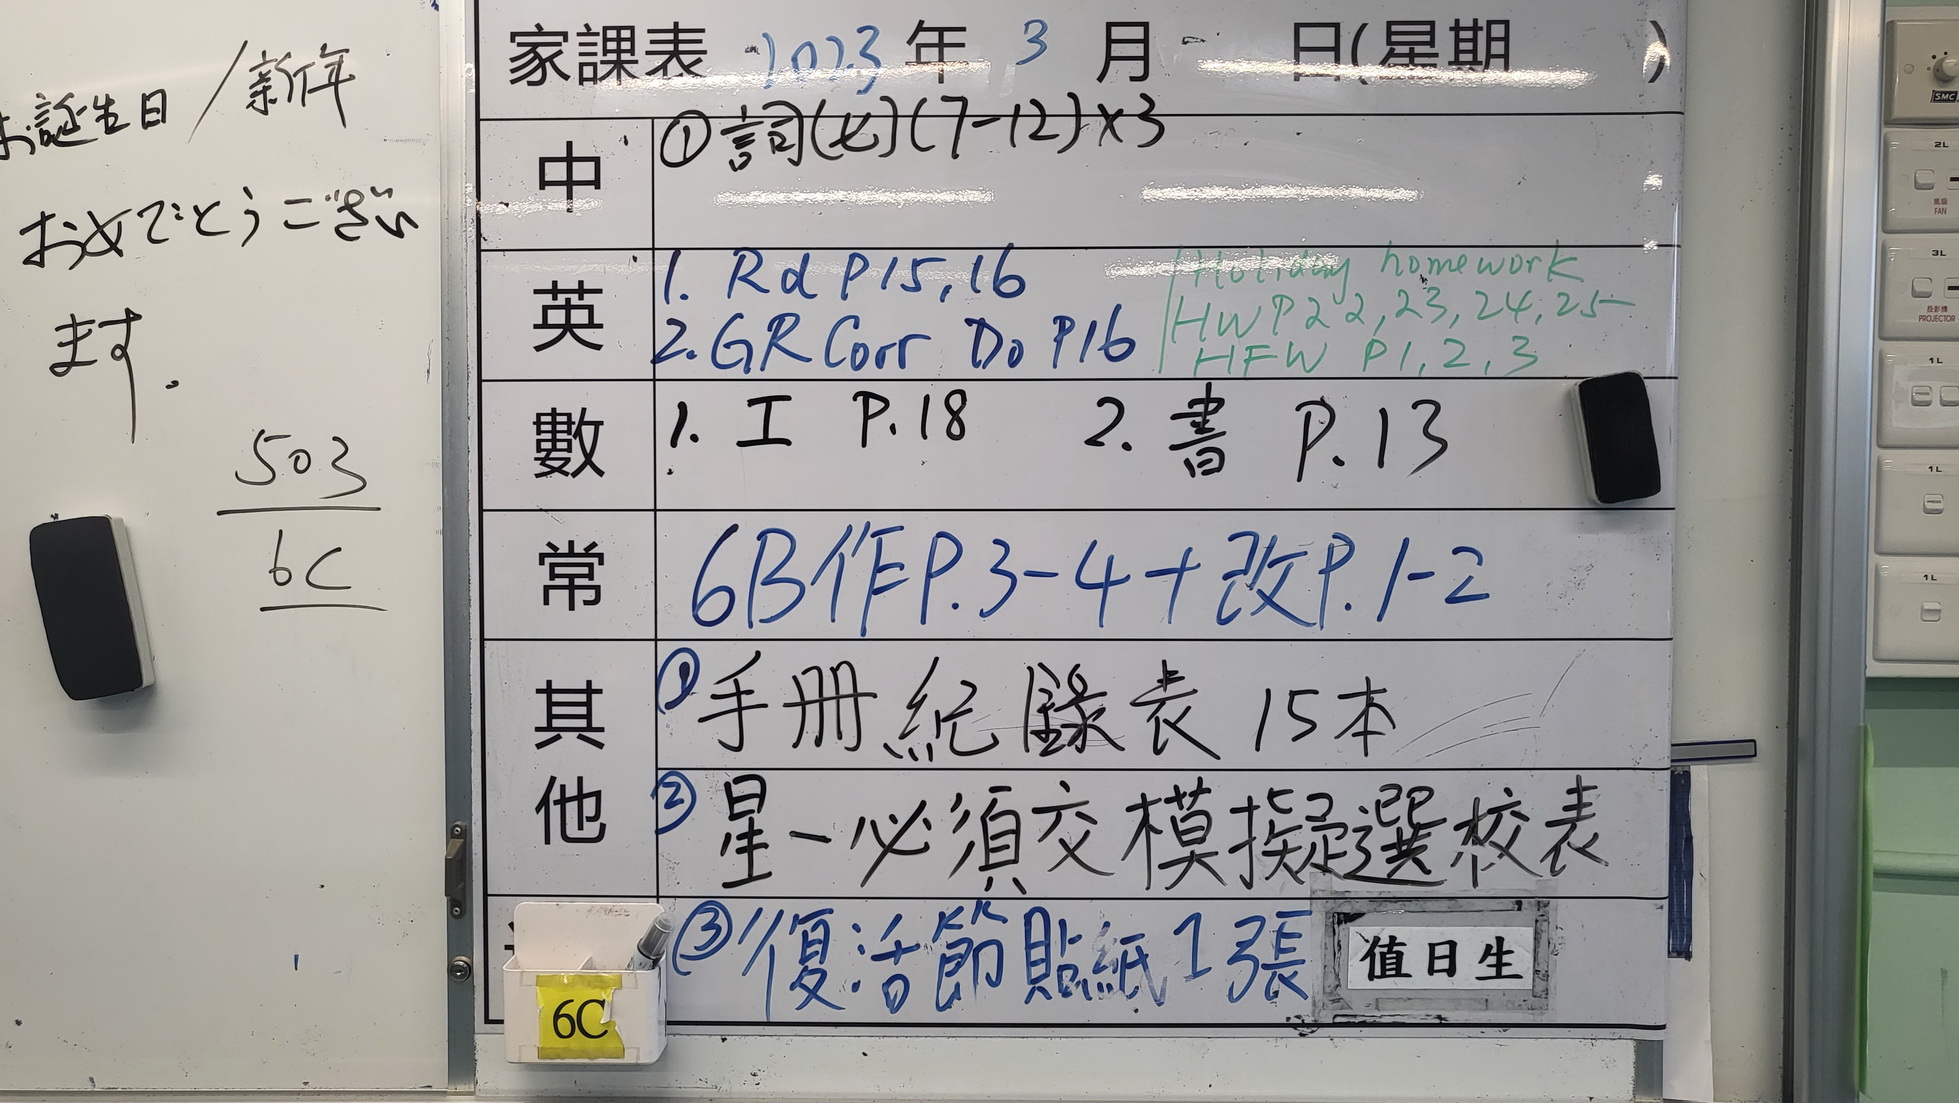 お誕生日/新年
おめでとうござい
ます.
503
6C
家課表 2023年 3 月 日(星期 )
中 ①詞(七)(7-12)x3
英 1. Rd P15,16
2. GR Corr Do P16
Holiday homework
HW P22,23,24,25
HFW P1,2,3
數 1. 工 P.18 2. 書 P.13
常 6B作P.3-4+改P.1-2
其他 ①手册紀錄表 15本
②星一必須交模擬選校表
③復活節貼紙1張
值日生
6C
SMC
2L
風扇
FAN
3L
投影機
PROJECTOR
1L
1L
1L